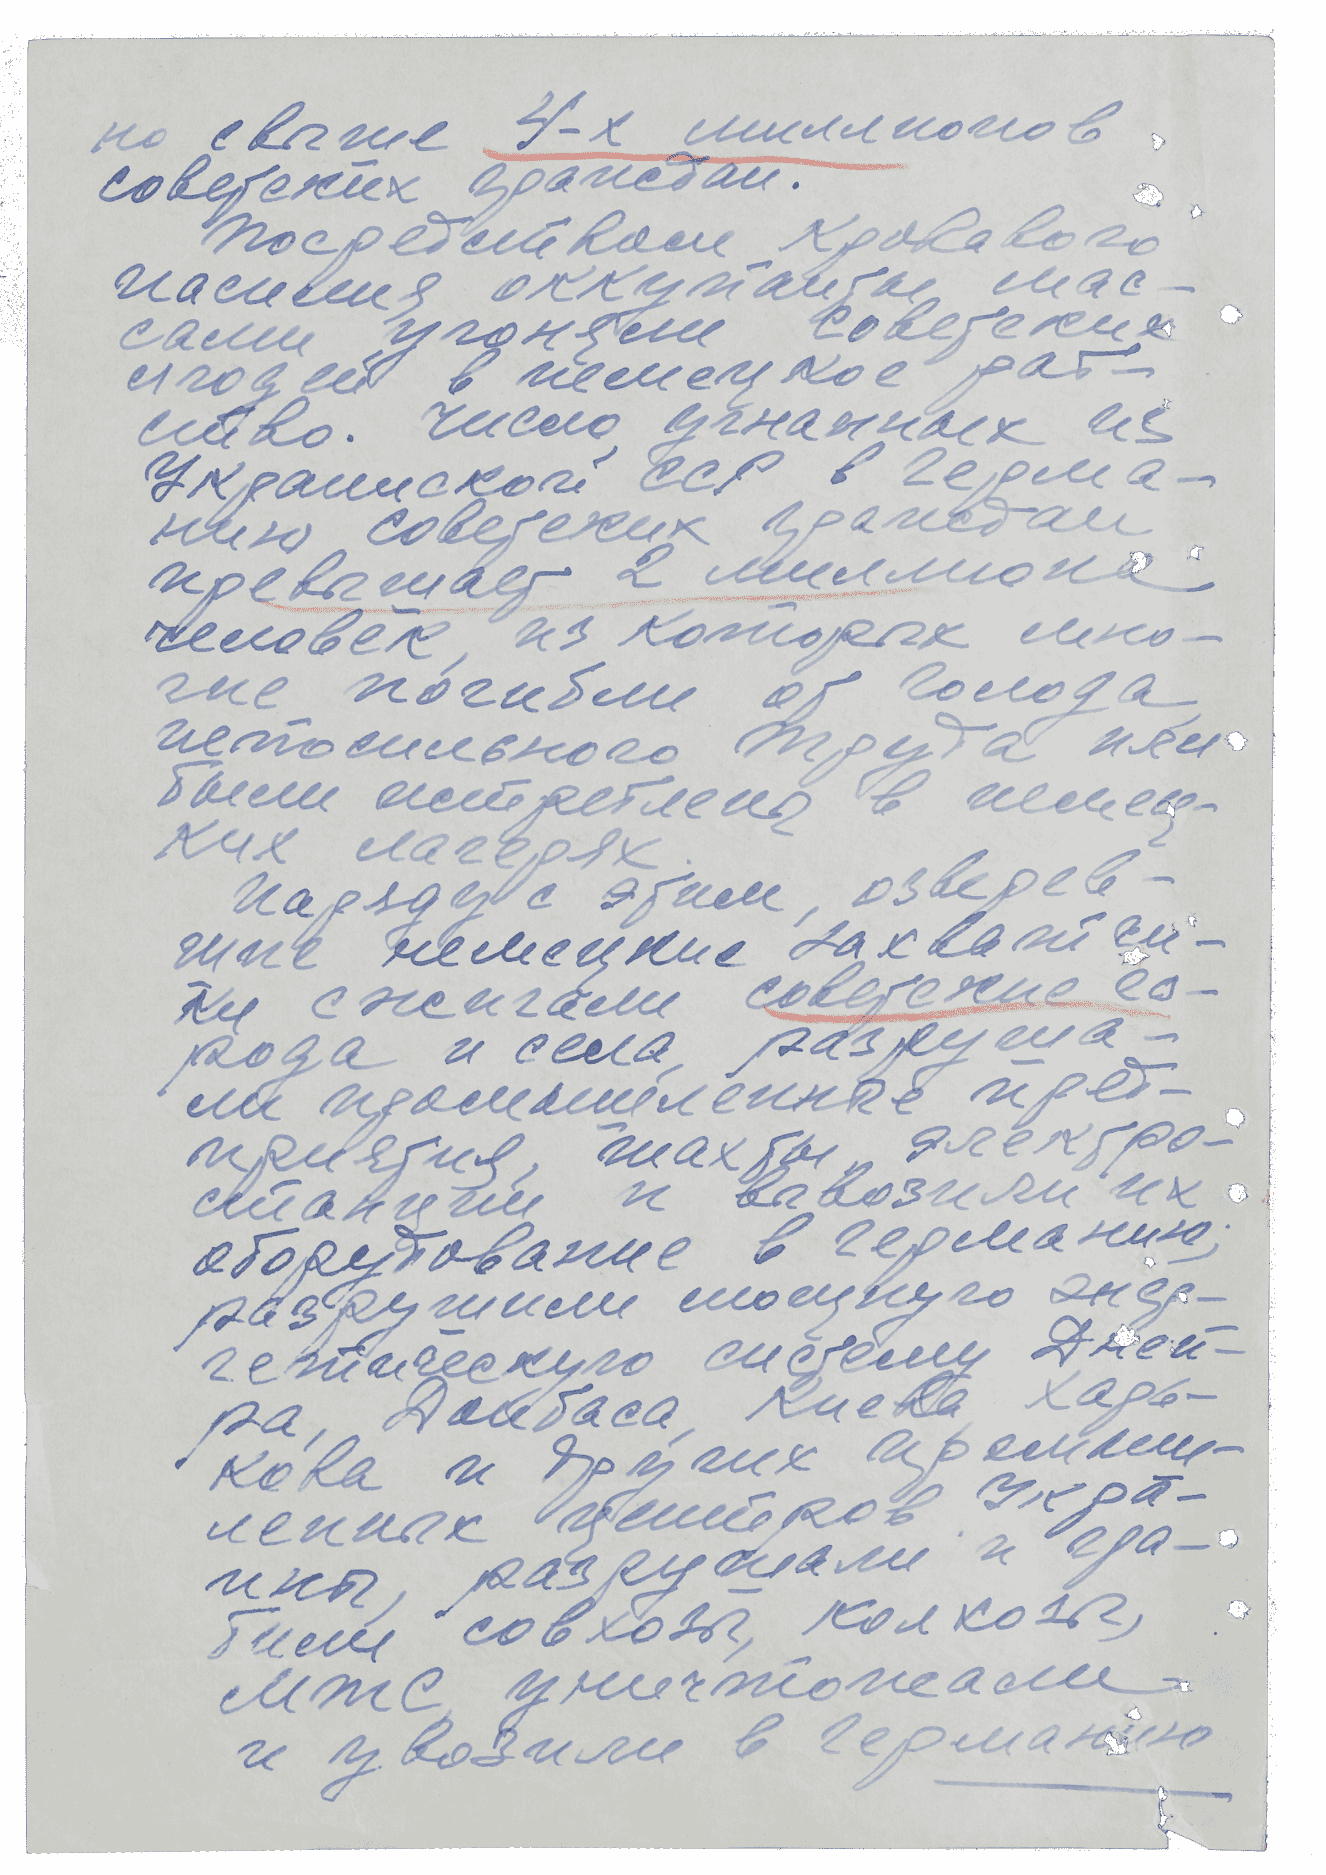 но свыше 4-х миллионов
советских граждан.
Посредством кровавого
насилия, оккупанты мас-
сами угоняли советских
людей в немецкое раб-
ство. Число угнанных из
Украинской ССР в Герма-
нию советских граждан
превышает 2 миллиона
человек, из которых мно-
гие погибли от голода,
непосильного труда или
были истреблены в немец-
ких лагерях.
Наряду с этим, озверев-
шие немецкие захватчи-
ки сжигали советские го-
рода и села, разруша-
ли промышленные пред-
приятия, шахты, электро-
станции и вывозили их
оборудование в Германию;
разрушили мощную энер-
гетическую систему Днеп-
ра, Донбаса, Киева, Харь-
кова и других промыш-
ленных центров Укра-
ины, разрушали и гра-
били совхозы, колхозы,
МТС, уничтожали
и увозили в Германию